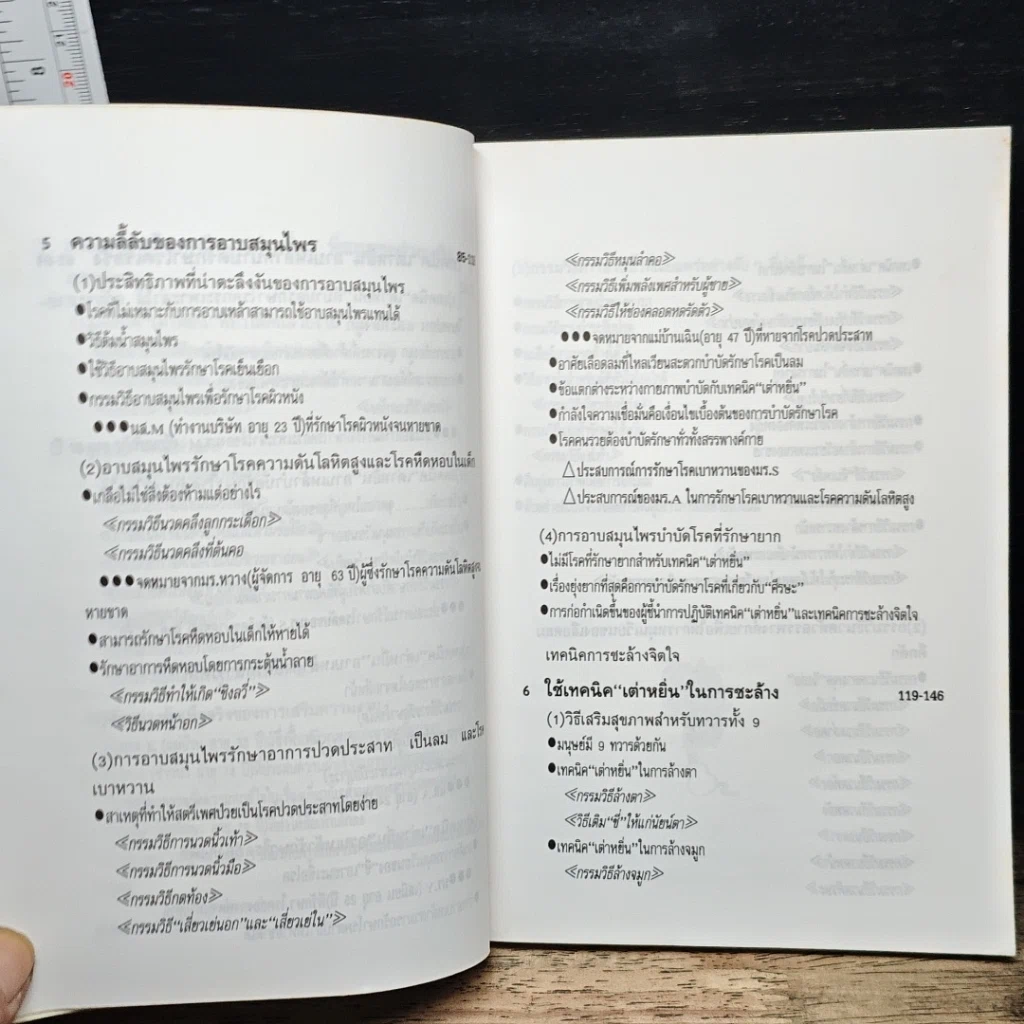 5 ความลี้ลับของการอาบสมุนไพร
(1)ประสิทธิภาพที่น่าตะลึงงันของการอาบสมุนไพร
●โรคที่ไม่เหมาะกับการอาบเหล้าสามารถใช้อาบสมุนไพรแทนได้
●วิธีต้มน้ำสมุนไพร
●ใช้วิธีอาบสมุนไพรรักษาโรคเย็นเยือก
●กรรมวิธีอาบสมุนไพรเพื่อรักษาโรคผิวหนัง
●●●นส.M (ทำงานบริษัท อายุ 23 ปี)ที่รักษาโรคผิวหนังจนหายขาด
(2)อาบสมุนไพรรักษาโรคความดันโลหิตสูงและโรคหืดหอบในเด็ก
●เกลือไม่ใช่สิ่งต้องห้ามแต่อย่างไร
≪กรรมวิธีนวดคลึงลูกกระเดือก≫
≪กรรมวิธีนวดคลึงที่ต้นคอ
●●●จดหมายจากมร.หวาง(ผู้จัดการ อายุ 63 ปี)ผู้ซึ่งรักษาโรคความดันโลหิตสูง
หายขาด
●สามารถรักษาโรคหืดหอบในเด็กให้หายได้
●รักษาอาการหืดหอบโดยการกระตุ้นน้ำลาย
≪กรรมวิธีทำให้เกิด“ชิงลวี่”≫
≪วิธีนวดหน้าอก≫
(3)การอาบสมุนไพรรักษาอาการปวดประสาท เป็นลม และโรค
เบาหวาน
●สาเหตุที่ทำให้สตรีเพศป่วยเป็นโรคปวดประสาทโดยง่าย
≪กรรมวิธีการนวดนิ้วเท้า≫
≪กรรมวิธีการนวดนิ้วมือ≫
≪กรรมวิธีกดท้อง≫
≪กรรมวิธี“เสี่ยวเย่นอก”และ“เสี่ยวเย่ใน”≫
≪กรรมวิธีหมุนลำคอ≫
≪กรรมวิธีเพิ่มพลังเพศสำหรับผู้ชาย≫
≪กรรมวิธีให้ช่องคลอดหดรัดตัว≫
●●●จดหมายจากแม่บ้านเฉิน(อายุ 47 ปี)ที่หายจากโรคปวดประสาท
●อาศัยเลือดลมที่ไหลเวียนสะดวกบำบัดรักษาโรคเป็นลม
●ข้อแตกต่างระหว่างกายภาพบำบัดกับเทคนิค“เต๋าหยิ่น”
●กำลังใจความเชื่อมั่นคือเงื่อนไขเบื้องต้นของการบำบัดรักษาโรค
●โรคคนรวยต้องบำบัดรักษาทั่วทั้งสรรพางค์กาย
△ประสบการณ์การรักษาโรคเบาหวานของมร.S
△ประสบการณ์ของมร.A ในการรักษาโรคเบาหวานและโรคความดันโลหิตสูง
(4)การอาบสมุนไพรบำบัดโรคที่รักษายาก
●ไม่มีโรคที่รักษายากสำหรับเทคนิค“เต๋าหยิ่น”
●เรื่องยุ่งยากที่สุดคือการบำบัดรักษาโรคที่เกี่ยวกับ“ศีรษะ”
●การก่อกำเนิดขึ้นของผู้ชี้นำการปฏิบัติเทคนิค“เต๋าหยิ่น”และเทคนิคการชะล้างจิตใจ
เทคนิคการชะล้างจิตใจ
6 ใช้เทคนิค“เต๋าหยิ่น”ในการชะล้าง 119-146
(1)วิธีเสริมสุขภาพสำหรับทวารทั้ง 9
●มนุษย์มี 9 ทวารด้วยกัน
●เทคนิค“เต๋าหยิ่น”ในการล้างตา
≪กรรมวิธีล้างตา≫
≪วิธีเติม“ชี่”ให้แก่นัยน์ตา≫
●เทคนิค“เต๋าหยิ่น”ในการล้างจมูก
≪กรรมวิธีล้างจมูก≫